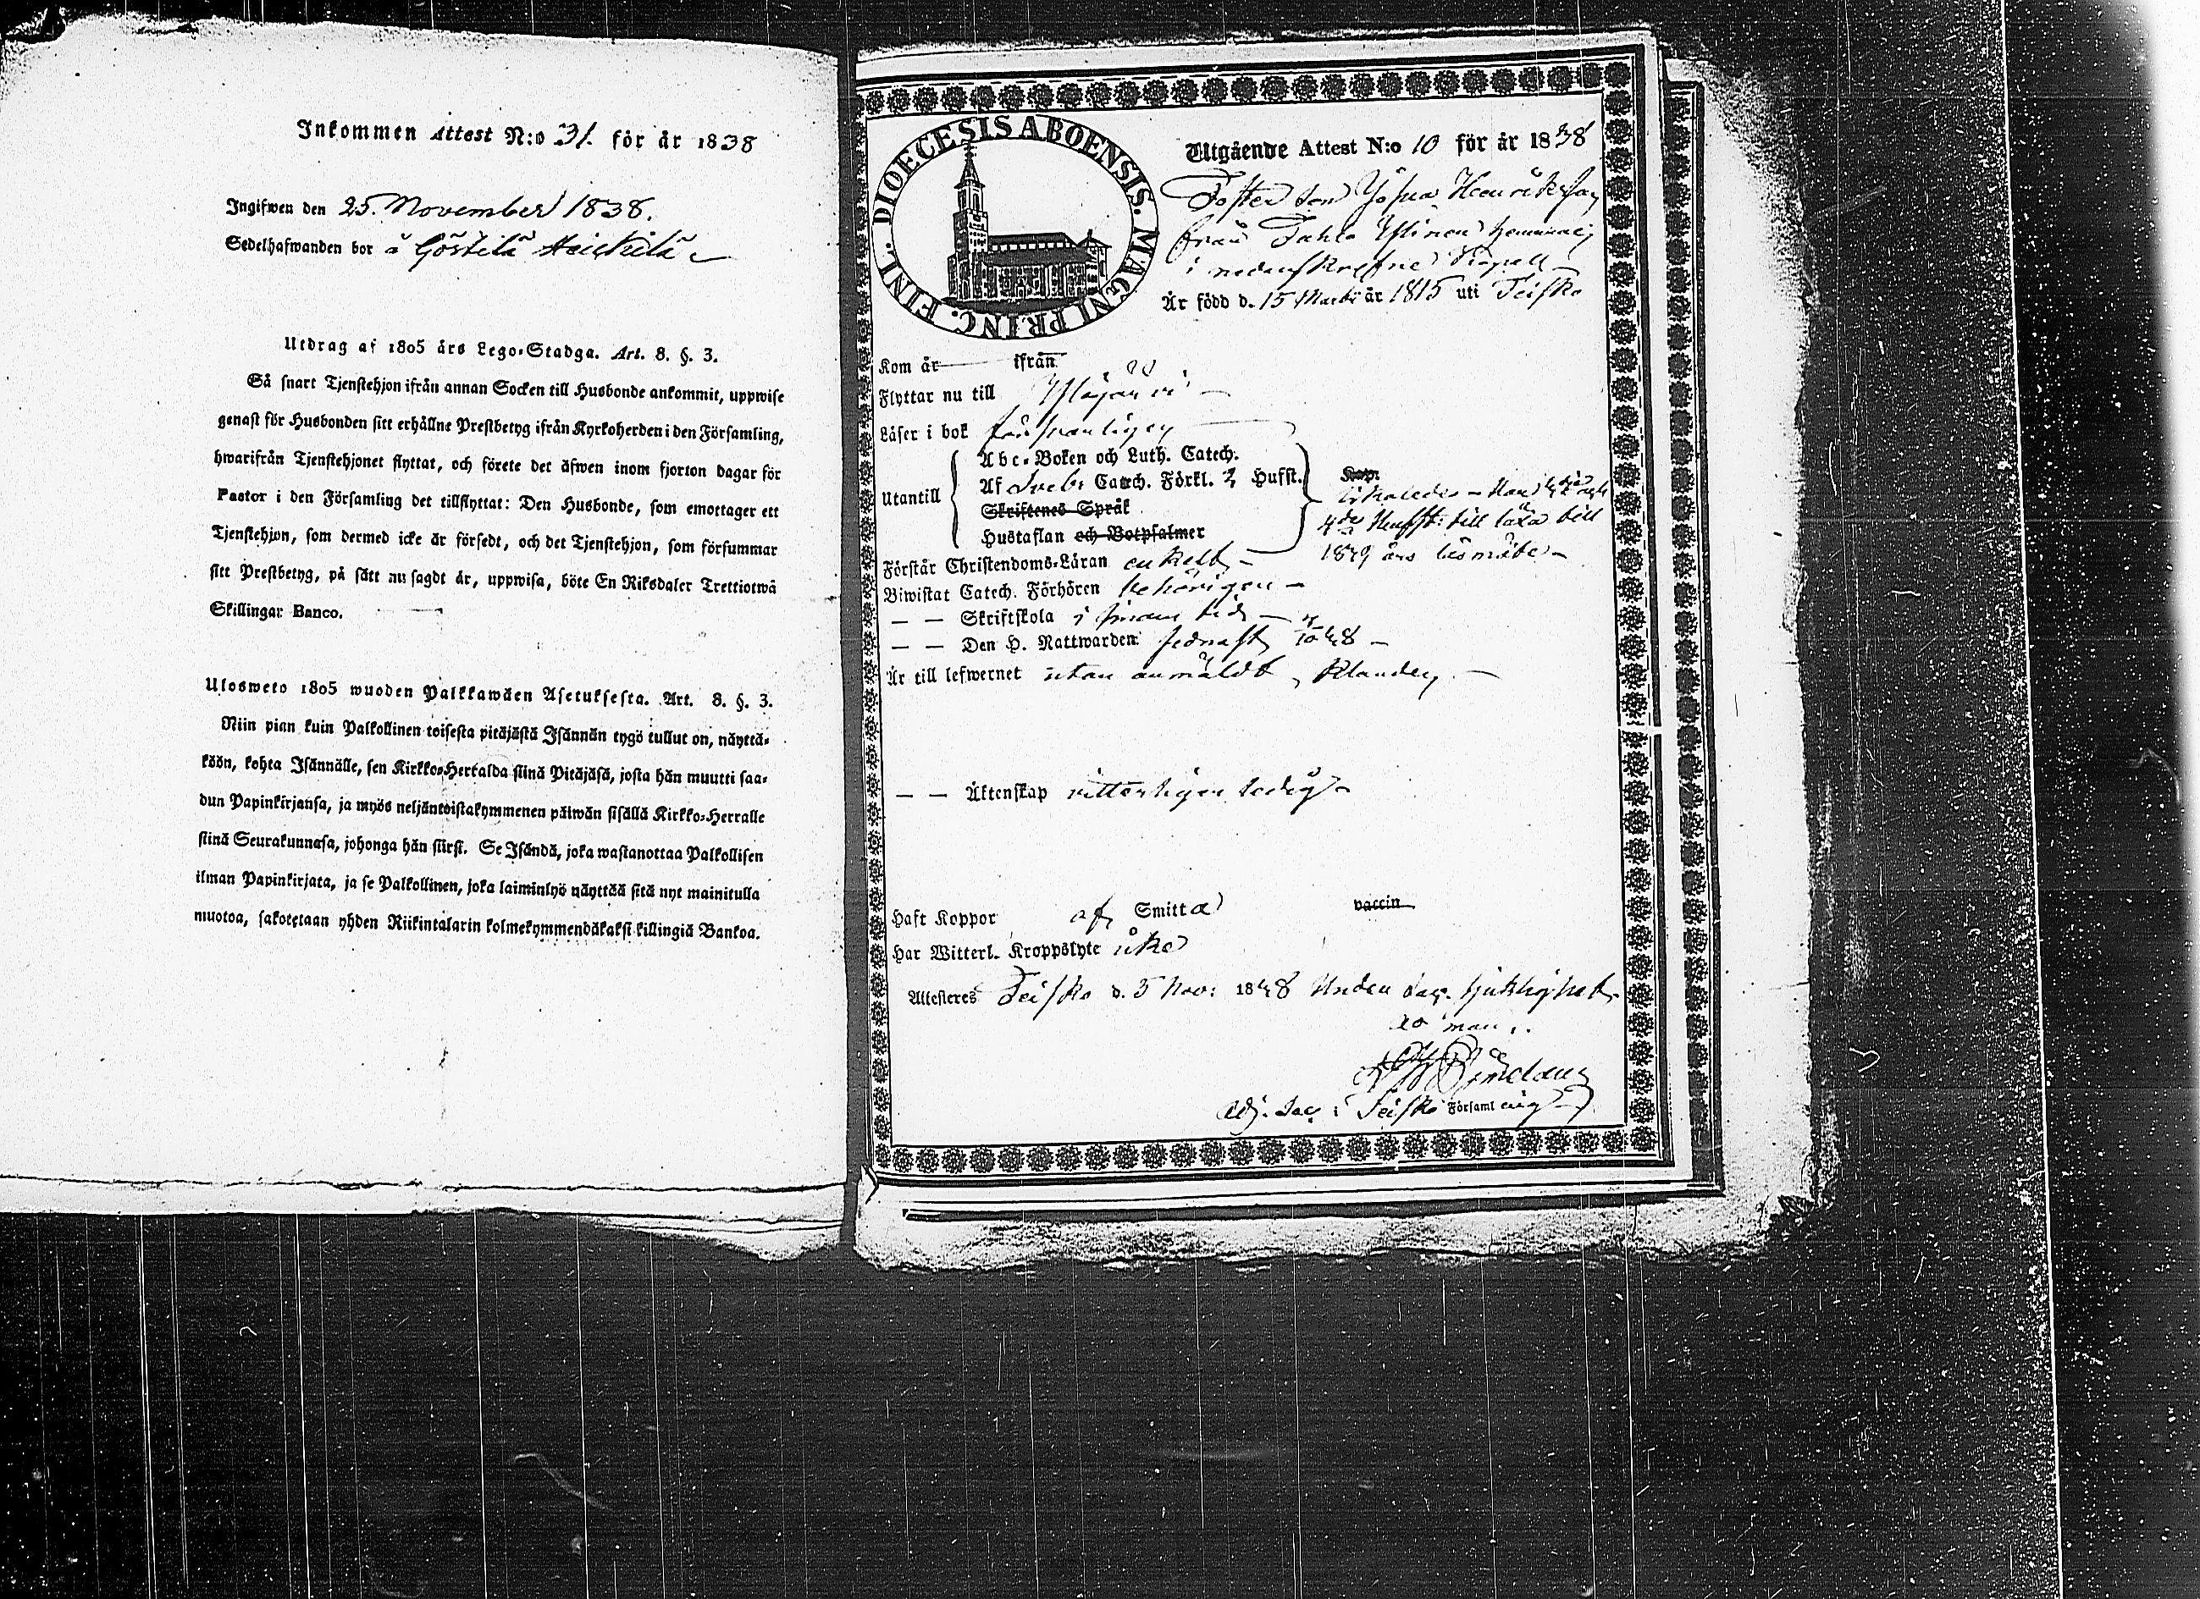 Inkommen Attest N:o 31. för år 1838
Ingifwen den 25. November 1838.
Sedelhafwanden bor å Göstilä Heickilä
Utdrag af 1805 års Lego-Stadga. Art. 8. §. 3.
Så snart Tjenstehjon ifrån annan Socken till Husbonde ankommit, uppwise
genast för Husbonden sitt erhållne Prestbetyg ifrån Kyrkoherden i den Församling,
hwarifrån Tjenstehjonet flyttat, och förete det äfwen inom fjorton dagar för
Pastor i den Församling det tillflyttat: Den Husbonde, som emottager ett
Tjenstehjon, som dermed icke är försedt, och det Tjenstehjon, som försummar
sitt Prestbetyg, på sätt nu sagdt är, uppwisa, böte En Riksdaler Trettiotwå
Skillingar Banco.
Ulosweto 1805 wuoden Palkkawäen Asetuksesta. Art. 8. §. 3.
Niin pian kuin Palkollinen toisesta pitäjästä Isännän tygö tullut on, näyttä-
köön, kohta Isännälle, sen Kirkko-Herralda siinä Pitäjäsä, josta hän muutti saa-
dun Papinkirjansa, ja myös neljäntoistakymmenen päiwän sisällä Kirkko-Herralle
siinä Seurakunnasa, johonga hän siirsi. Se Isändä, joka wastanottaa Palkollisen
ilman Papinkirjata, ja se Palkollinen, joka laiminlyö näyttää sitä nyt mainitulla
muotoa, sakotetaan yhden Riikintalarin kolmekymmendäkaksi killingiä Bankoa.
DIOECESIS ABOENSIS. MAGNI PRINC. FINL.
Utgående Attest N:o 10 för år 1838
Foster son Josua Henriksson
från Hemman
i Kapell
Är född d. 15 Martii år 1815 uti Teisko
Kom år ifrån
Flyttar nu till Ylöjärvi
Läser i bok försvarligen
Abc-Boken och Luth. Catech.
Utantill Af Sveb. Catech. Förkl. 3 Hufst. Kap.
Skriftenes Språk
4de Hufst: till läxa till
Hustaflan och Botpsalmer
1839 års läsmöte
Förstår Christendoms-Läran enkelt
Biwistat Catech. Förhören behörigen
— — Skriftskola i sinom tid
— — Den H. Nattwarden sednast
Är till lefwernet utan anmäldt klander
— — Äktenskap vitterligen ledig
Haft Koppor af Smitta vaccin
Har Witterl. Kroppslyte icke
Attesteras Teisko d. 5 Nov: 1838 Under Sac.
Adj. Sac. i Teisko Församling